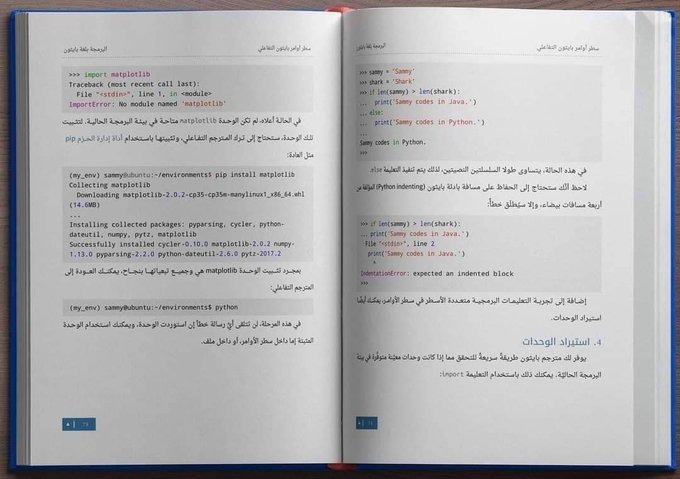 سطر أوامر بايثون التفاعلي
البرمجة بلغة بايثون
>>> sammy = 'Sammy'
>>> shark = 'Shark'
>>> if len(sammy) > len(shark):
... print('Sammy codes in Java.')
... else:
... print('Sammy codes in Python.')
...
Sammy codes in Python.
>>>
في هذه الحالة، يتساوى طولا السلسلتين النصيتين، لذلك يتم تنفيذ التعليمة else.
لاحظ أنَّك ستحتاج إلى الحفاظ على مسافة بادئة بايثون (Python indenting) المؤلفة من
أربعة مسافات بيضاء، وإلا سيُطلَق خطأ:
>>> if len(sammy) > len(shark):
... print('Sammy codes in Java.')
File "<stdin>", line 2
print('Sammy codes in Java.')
^
IndentationError: expected an indented block
>>>
إضافة إلى تجربة التعليمات البرمجية متعددة الأسطر في سطر الأوامر، يمكنك أيضًا
استيراد الوحدات.
4. استيراد الوحدات
يوفر لك مترجم بايثون طريقةً سريعةً للتحقق مما إذا كانت وحدات معيّنة متوفِّرة في بيئة
البرمجة الحاليَّة. يمكنك ذلك باستخدام التعليمة import:
سطر أوامر بايثون التفاعلي
البرمجة بلغة بايثون
>>> import matplotlib
Traceback (most recent call last):
File "<stdin>", line 1, in <module>
ImportError: No module named 'matplotlib'
في الحالة أعلاه، لم تكن الوحدة matplotlib متاحة في بيئة البرمجة الحالية. لتثبيت
تلك الوحدة، ستحتاج إلى ترك المترجم التفاعلي، وتثبيتها باستخدام أداة إدارة الحزم pip
مثل العادة:
(my_env) sammy@ubuntu:~/environments$ pip install matplotlib
Collecting matplotlib
Downloading matplotlib-2.0.2-cp35-cp35m-manylinux1_x86_64.whl
(14.6MB)
...
Installing collected packages: pyparsing, cycler, python-
dateutil, numpy, pytz, matplotlib
Successfully installed cycler-0.10.0 matplotlib-2.0.2 numpy-
1.13.0 pyparsing-2.2.0 python-dateutil-2.6.0 pytz-2017.2
بمجرد تثبيت الوحدة matplotlib هي وجميع تبعياتها بنجاح، يمكنك العودة إلى
المترجم التفاعلي:
(my_env) sammy@ubuntu:~/environments$ python
في هذه المرحلة، لن تتلقى أيَّ رسالة خطأ إن استوردت الوحدة، ويمكنك استخدام الوحدة
المثبتة إما داخل سطر الأوامر، أو داخل ملف.